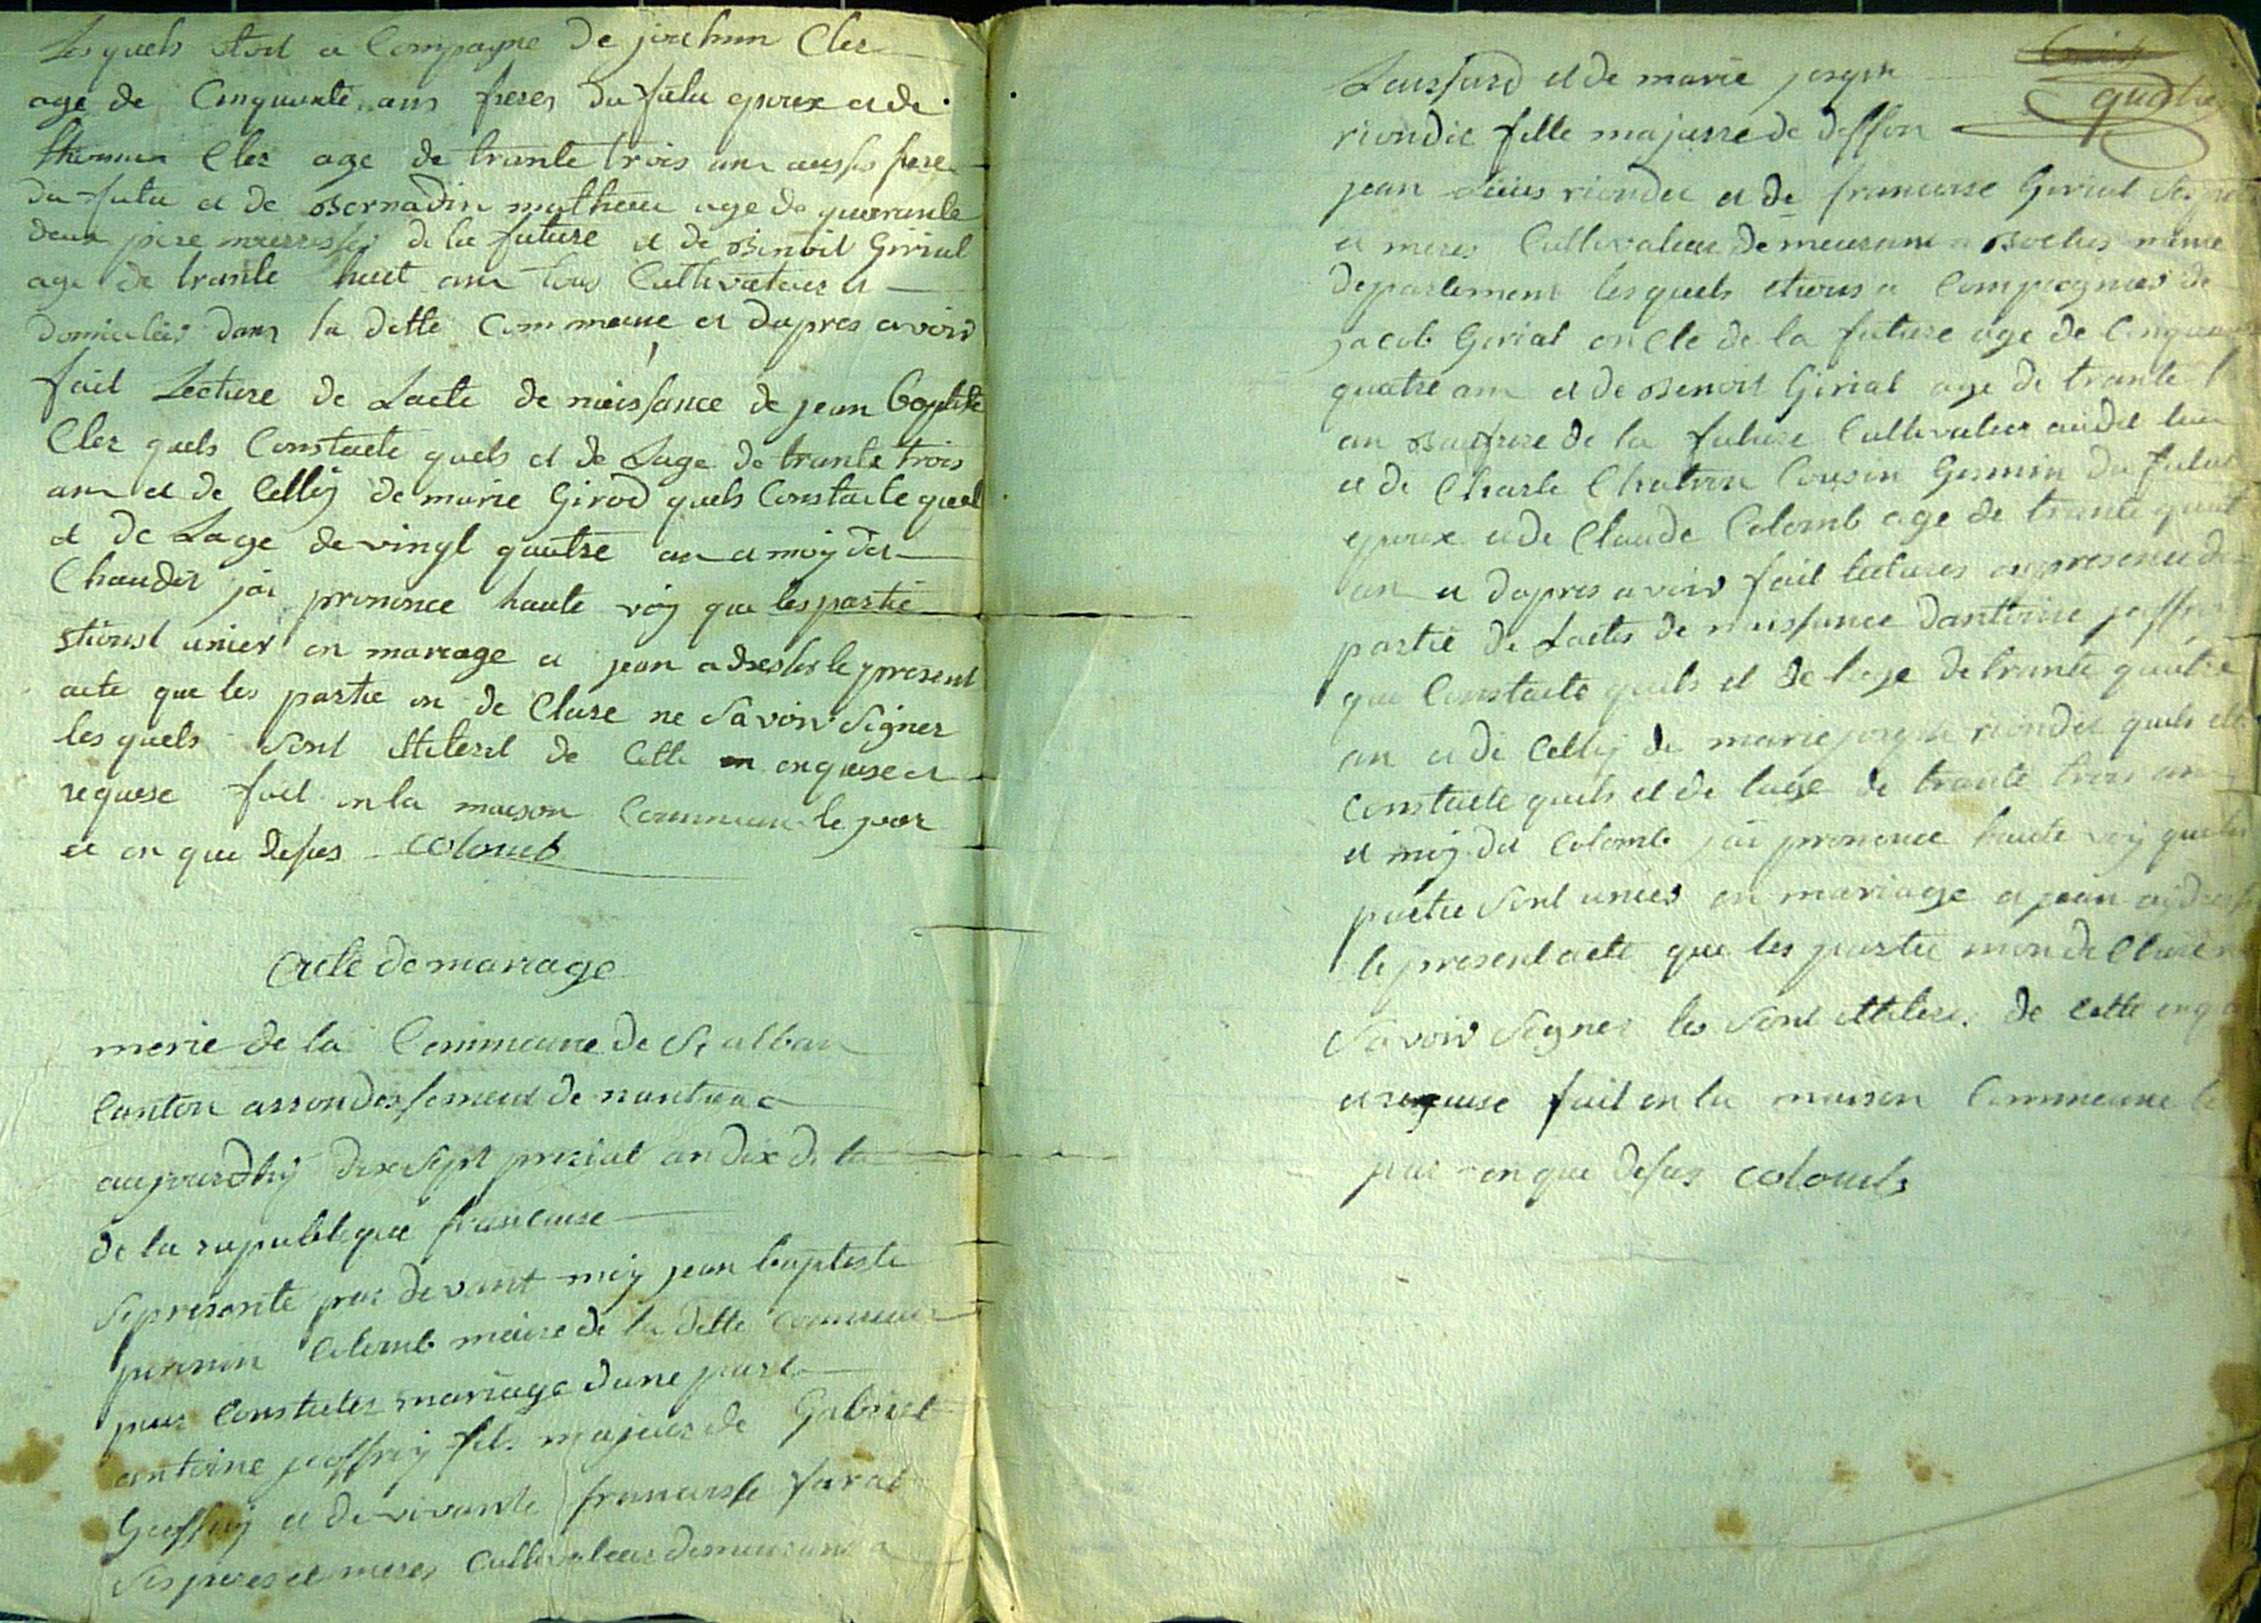 Les quels etoit a Compagne de joachim Cler
age de Cinquante ans freres du futu epoux et de
Cler age de trante trois ans aussis frere
du futu et de Bernadin mathieu age de quarante
deux pere nourrissier de la future et de Benoit Girial
age de trante huit ans tous Cultivateurs et
domicilies dans la ditte Commeune et dapres avoir
fait Lecture de Lacte de naissance de jean baptiste
Cler quels Constacte quels et de Lage de trante trois
an et de Celluy de marie Girod quels Constacte quel
et de Lage de vingt quatre an et moy dit
Chaudet jai prononce haute voy que les partie
etionst unier en mariage et jean adresser le present
acte que les partie on de Clare ne Savoir Signer
les quels Sont de Cette enquise et
requise fait en la maison Commeune le jour
et an que desus Colomb
Acte de mariage
merie de la Commeune de St alban
Canton arrondissement de nantua
aujourdhuy dix sept prerial an dix de la
de la republique francaise
Se presente par devant moy jean baptiste
perrin Colomb maire de la ditte Commeune
pour Constater mariage dune part
antoine joffrey fils majeur de Gabriel
Geoffrey et de vivante francoisse favat
Ses peres et meres Cultivateur demeurans a
quatre
et de marie joseph
riondet fille majeure de deffon
jean Louis riondet et de francoise Girial Ses pere
et meres Cultivateur demeurans a Boches meme
departement les quels etions a Compagnies de
jacob Girial oncle de la future age de Cinquante
quatre ans et de Benoit Girial age de trante
an Beaufrere de la future Cultivateur audit lieu
et de Charle Chatron Cousin Germin du futur
epoux et de Claude Colomb age de trante quatre
an et dapres avoir fait lectures en presence des
partie de Lactes de naissance dantoine joffrey
que Constacte quels et de lage de trante quatre
an et de Celluy de marie joseph riondet quels elle
Constacte quels et de lage de trante trois ans
et moy dit Colomb jai prononce haute voy que les
partie Sont unies en mariage et jean
le present acte que les partie mon de Clare ne
Savoir Signer les Sont de Cette
et requise fait en la maison Commeune le
jour et an que desus Colomb